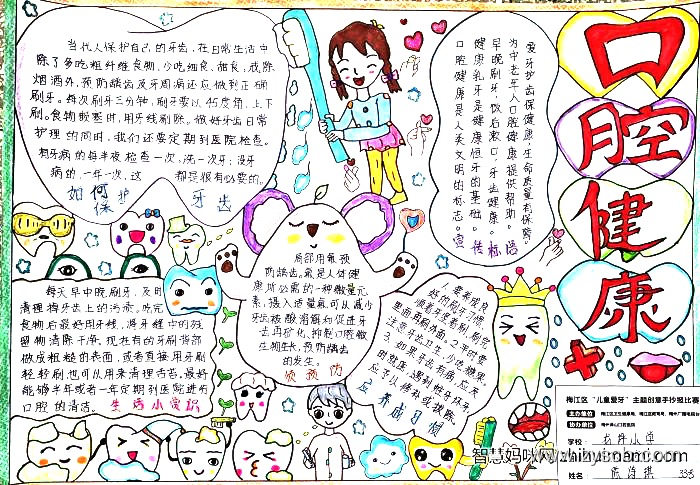 口腔健康
当代人保护自己的牙齿，在日常生活中
除了多吃粗纤维食物，少吃细食、甜食，戒除
烟酒外，预防龋齿及牙周病还应做到正确
刷牙。每次刷牙三分钟，刷牙要以45度角，上下
刷。食物嵌塞时，用牙线剔除。做好牙齿日常
护理的同时，我们还要定期到医院检查。
有牙病的每半年检查一次，洗一次牙；没牙
病的，一年一次，这 都是很有必要的。
如何保护 牙齿
爱牙护齿保健康，生命质量有保障。
为中老年人口腔健康提供帮助。
早晚刷牙，饭后漱口，牙齿健康。
健康乳牙是健康恒牙的基础。
口腔健康是人类文明的标志。宣传标语
局部用氟预
防龋齿。氟是人体健
康所必需的一种微量元
素，摄入适量氟可以减少
牙齿被酸溶解和促进牙
齿再矿化，抑制口腔微
生物生长，预防龋齿
的发生。
每天早中晚刷牙，及时
清理掉牙齿上的污渍。吃完
食物后最好用牙线，将牙缝中的残
留物清除干净。现在有的牙刷背部
做成粗糙的表面，或者直接用牙刷
轻轻刷也可以用来清理舌苔。最好
能够半年或者一年定期到医院进行
口腔的清洁。生活小常识
要养成良
好的刷牙习惯，
顺着牙齿刷，刷完
里面再刷外面。2.平时要
注意牙齿卫生，少吃糖果。
3.如果牙齿有病，应及
时就医，遇到蛀牙坏牙，
应予以修补或拔除。
梅江区“儿童爱牙”主题创意手抄报比赛
主办单位
协办单位
学校：
姓名：
智慧妈咪网 zhihuimami.com